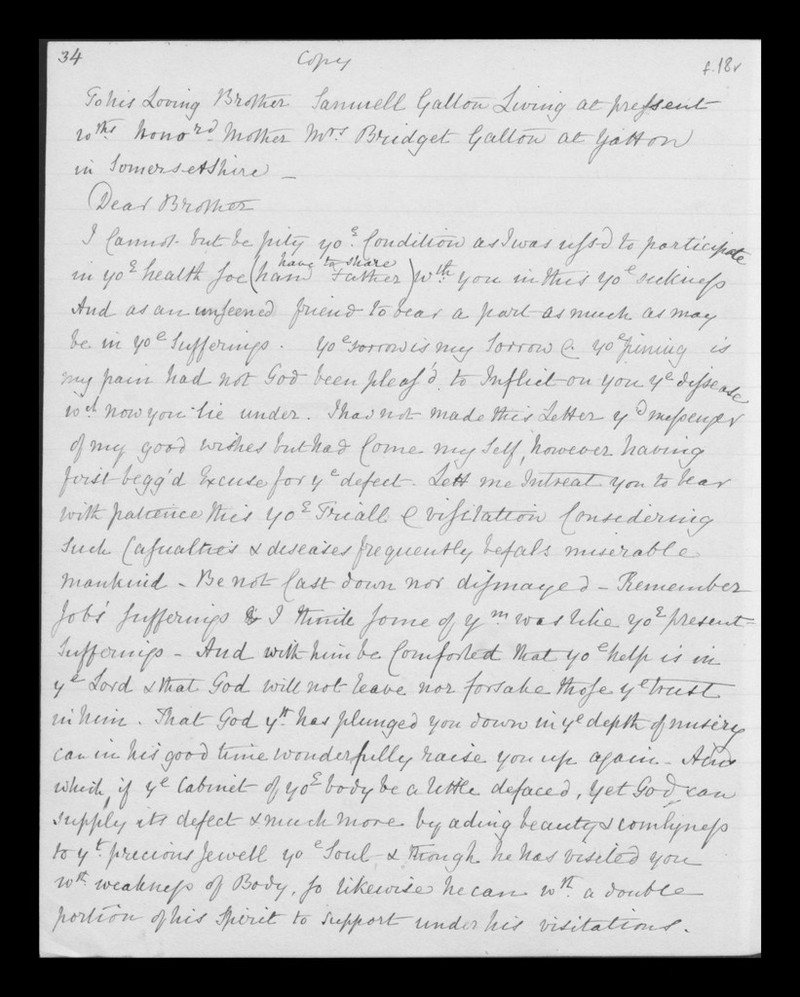 34 Copy f.18v
To his Loving Brother Samuell Galton Living at pressent
wths honord Mother Mrs Bridget Galton at Yatton
in Somersetshire _
Dear Brother
I Cannot but be pity yoe Condition as I was ussd to participate
in yoe health soe (ham Father) wth you in this yoe sickness
have to share
And as an unseened friend to bear a part as much as may
be in yoe Sufferings. Yoe sorrow is my Sorrow & yoe pining is
my pain had not God been pleas'd to Inflict on you ye dissease
wch now you lie under. I had not made this Letter yd messenger
of my good wishes but had Come my Self, however having
first begg'd Excuse for ye defect. Lett me Intreat you to bear
with patience this yoe Triall & visitation Considering
Such Casualties & diseases frequently befals miserable
mankind - Be not Cast down nor dismayed - Remember
Jobs' sufferings & I think some of ym was like yoe present
Sufferings - And with him be Comforted that yoe help is in
ye Lord & that God will not leave nor forsake those ye trust
in him. That God yt has plunged you down in ye depth of misery
can in his good time wonderfully raise you up again - And
which, if ye Cabinet of yoe body be a little defaced, yet God can
supply its defect & much more by ading beauty & comlyness
to yt precious Jewell yoe Soul & though he has visited you
wth weakness of Body, so likewise he can wth a double
portion of his Spirit to support under his visitations.